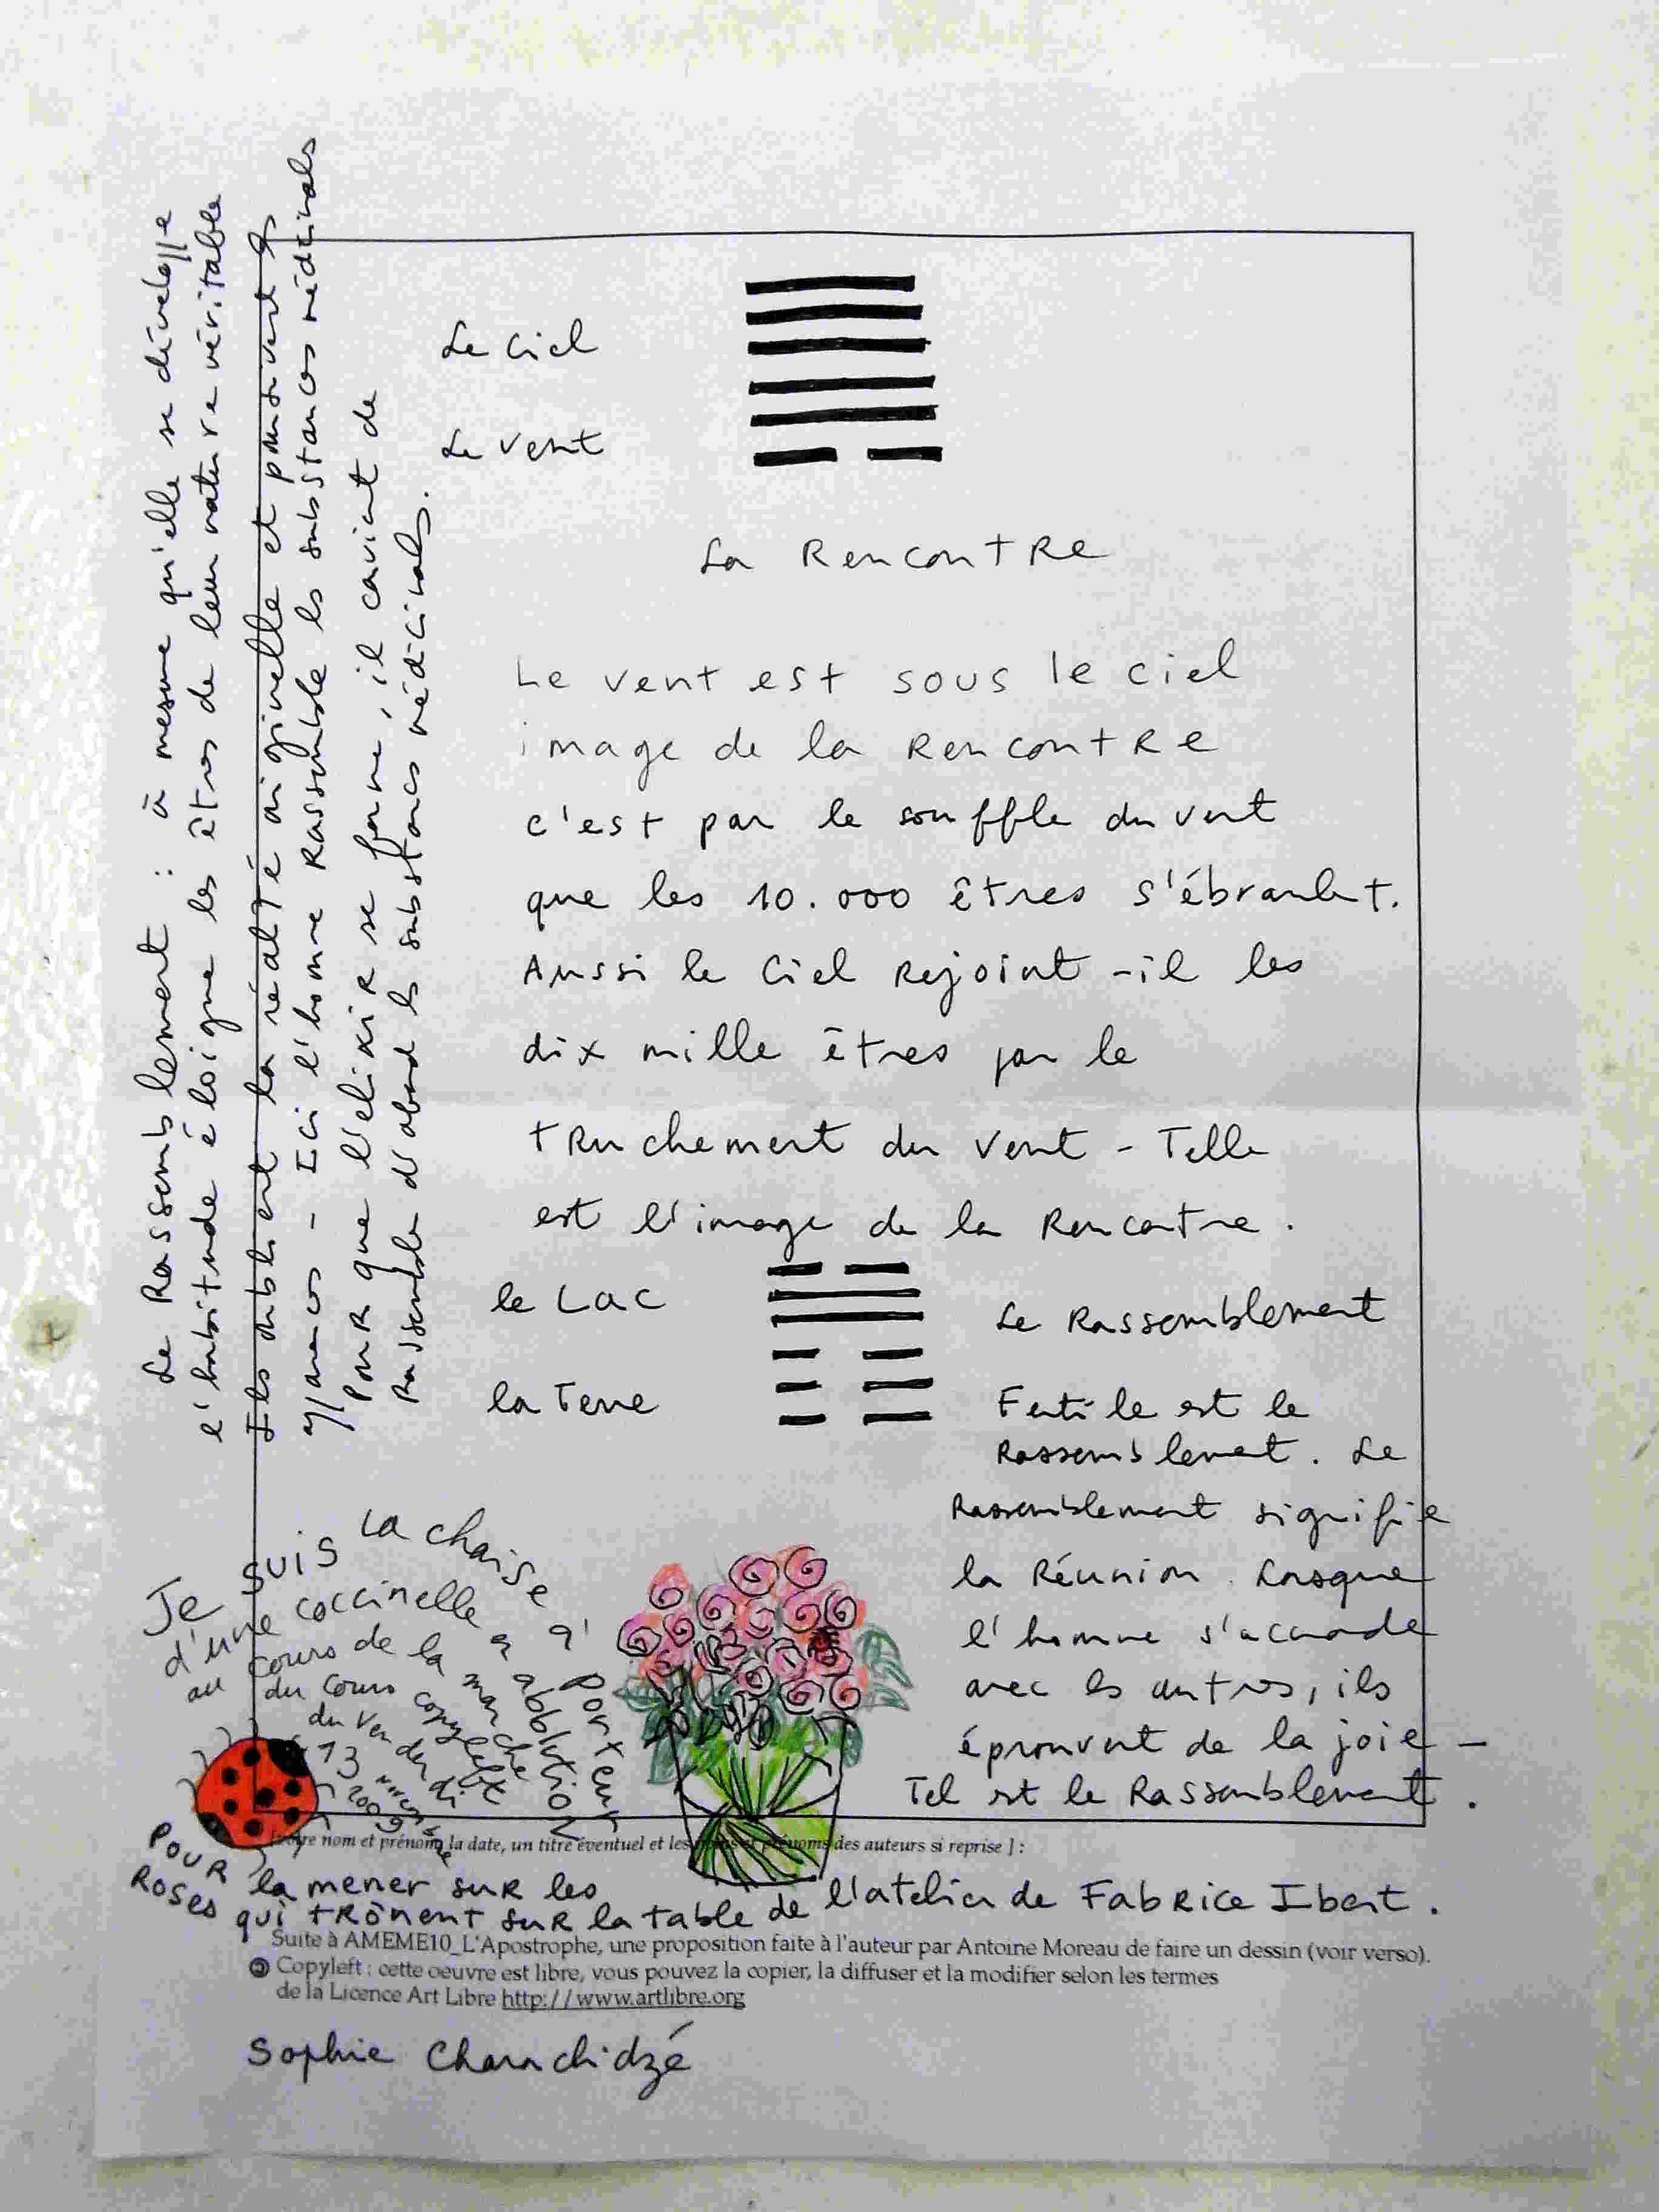 Le Rassemblement : à mesure qu'elle se développe
l'habitude éloigne les êtres de leur nature véritable
Ils oublient la réalité originelle et poursuivent les
apparences - Ici l'homme Rassemble les substances médicinales
Pour que l'elixir se forme, il convient de
Rassembler d'abord les substances médicinales.
Le Ciel
Le vent
La Rencontre
Le vent est sous le ciel
image de la Rencontre
c'est par le souffle du vent
que les 10.000 êtres s'ébranlent.
Aussi le Ciel Rejoint-il les
dix mille êtres par le
truchement du vent - Telle
est l'image de la Rencontre.
le Lac
la Terre
Le Rassemblement
le est le
Rassemblement. Le
Rassemblement signifie
la Réunion. Lorsque
l'homme s'accorde
avec les autres, ils
éprouvent de la joie -
Tel est le Rassemblement.
Je suis la chaise à porteur
d'une coccinelle en abblution
au cours de la marche
du cours copyleft
du vendredi
13
2009
nom et prénom, la date, un titre éventuel et les noms et prénoms des auteurs si reprise ] :
Pour la mener sur les
Roses qui trônent sur la table de l'atelier de Fabrice Ibert.
Suite à AMEME10_L'Apostrophe, une proposition faite à l'auteur par Antoine Moreau de faire un dessin (voir verso).
Copyleft : cette oeuvre est libre, vous pouvez la copier, la diffuser et la modifier selon les termes
de la Licence Art Libre http://www.artlibre.org
Sophie Charachidzé